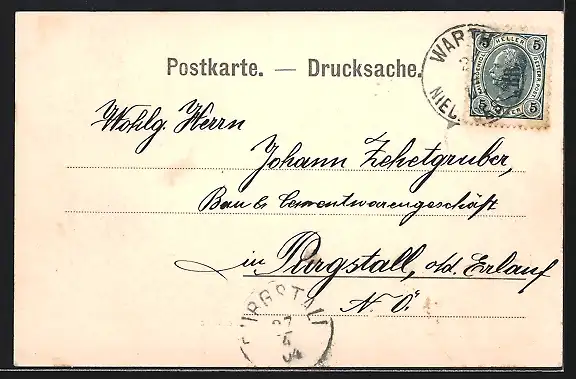 Postkarte. — Drucksache.
WARTH
NIED.
5 HELLER 5
5 5
Wohlg. Herrn
Johann Zehetgruber,
Bau & Cementwarengeschäft
in Purgstall, o/d. Erlauf
N. Ö.
PURGSTALL
27
4
04